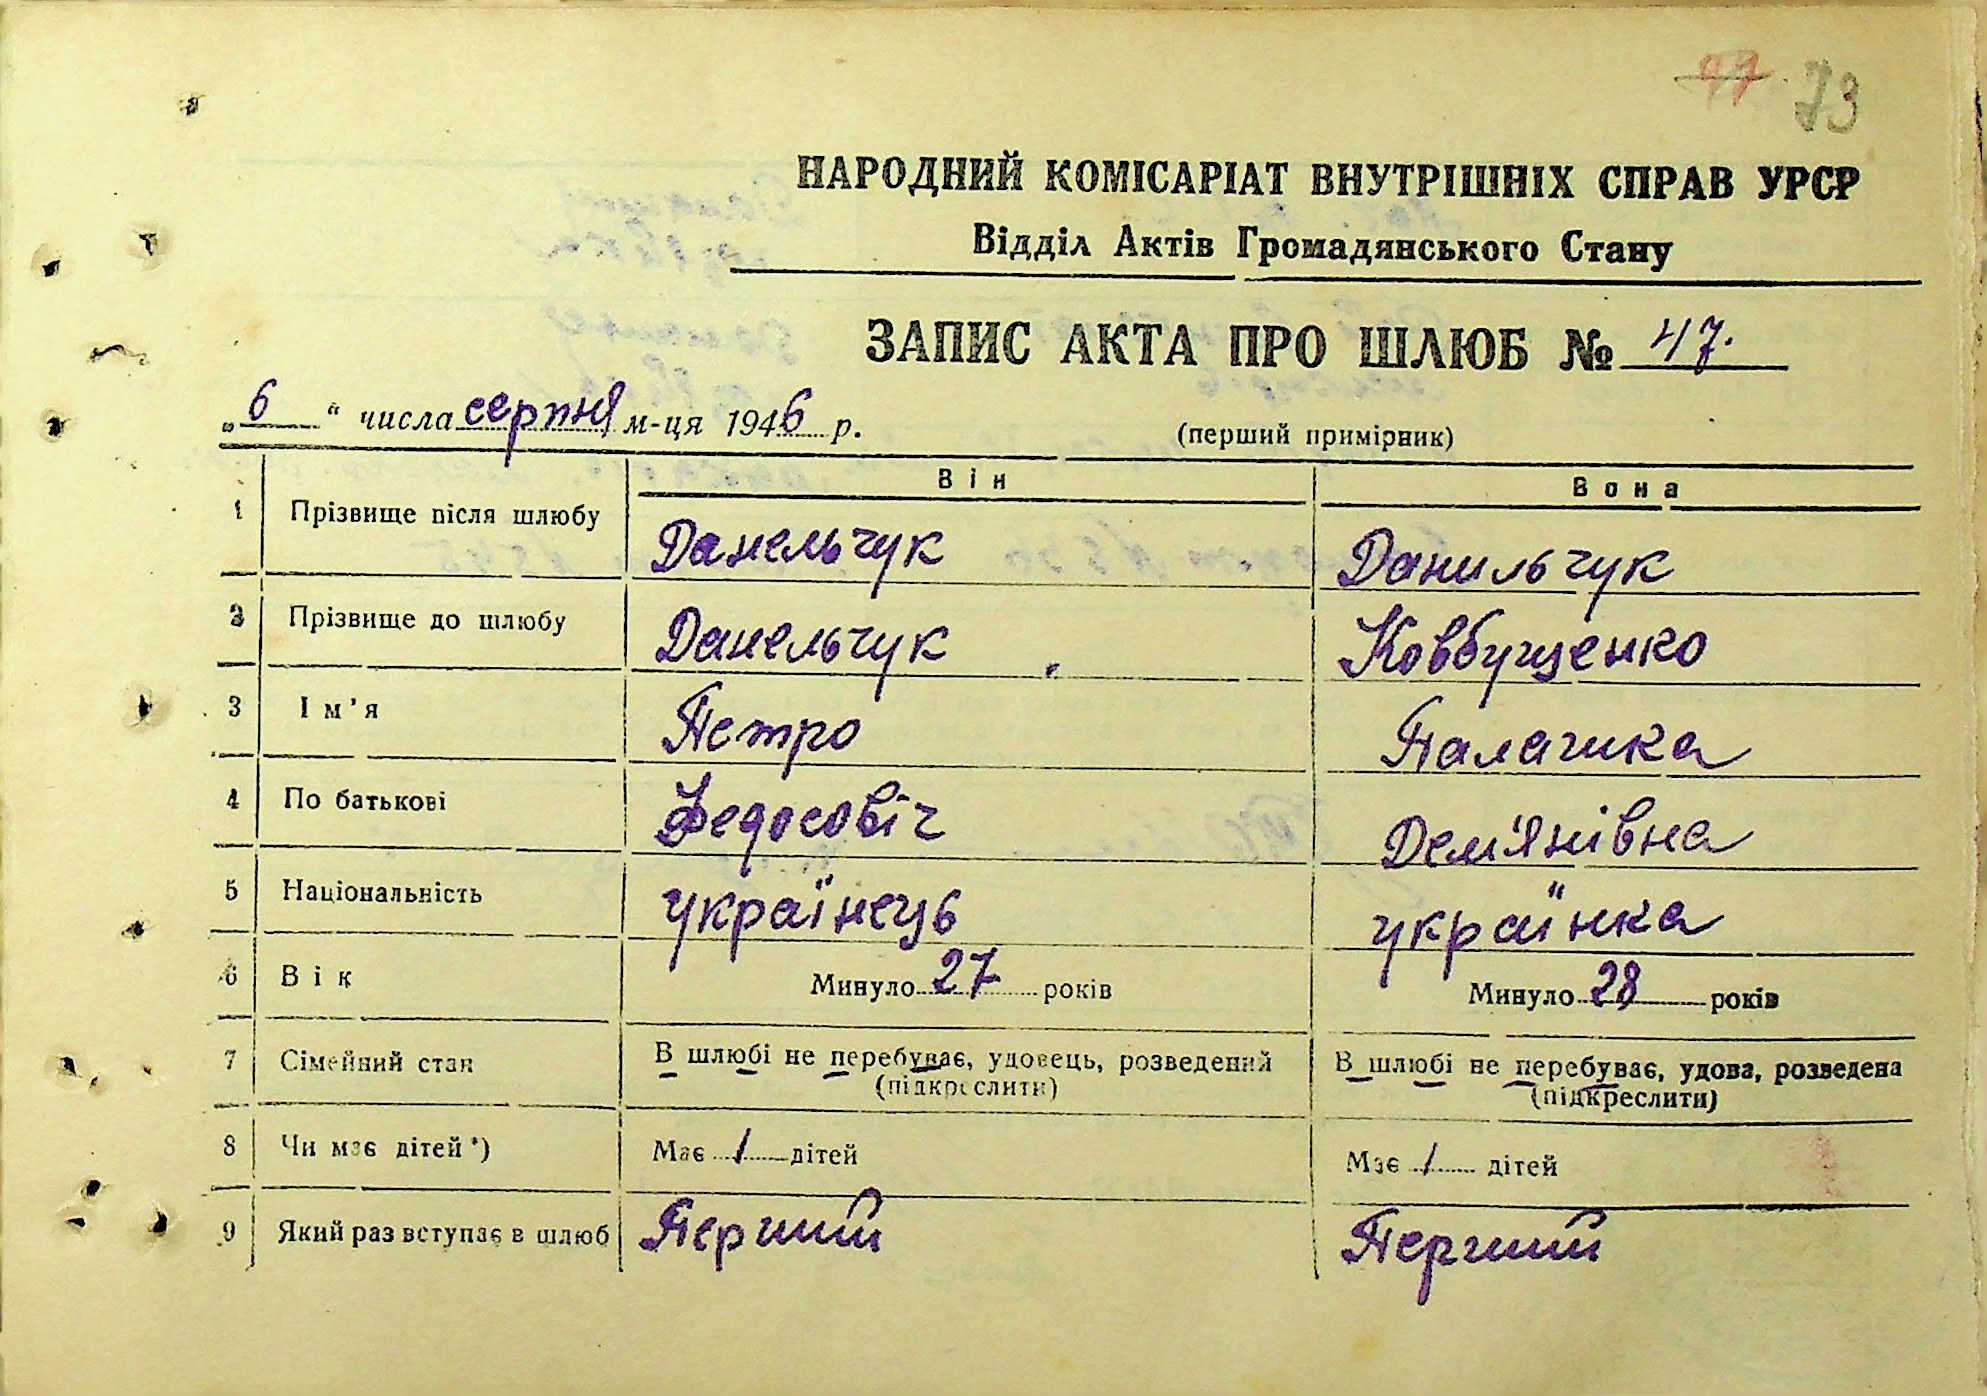 47 73
НАРОДНИЙ КОМІСАРІАТ ВНУТРІШНІХ СПРАВ УРСР
Відділ Актів Громадянського Стану
ЗАПИС АКТА ПРО ШЛЮБ № 47.
„6“ числа серпня м-ця 1946 р.
(перший примірник)
Він Вона
1 Прізвище після шлюбу Данельчук Данильчук
2 Прізвище до шлюбу Данельчук Ковбущенко
3 Ім'я Петро Палагика
4 По батькові Федосовіч Дем'янівна
5 Національність українець українка
6 Вік Минуло 27 років Минуло 28 років
7 Сімейний стан В шлюбі не перебуває, удовець, розведений В шлюбі не перебуває, удова, розведена
(підкреслити) (підкреслити)
8 Чи має дітей *) Має 1 дітей Має 1 дітей
9 Який раз вступає в шлюб Перший Перший